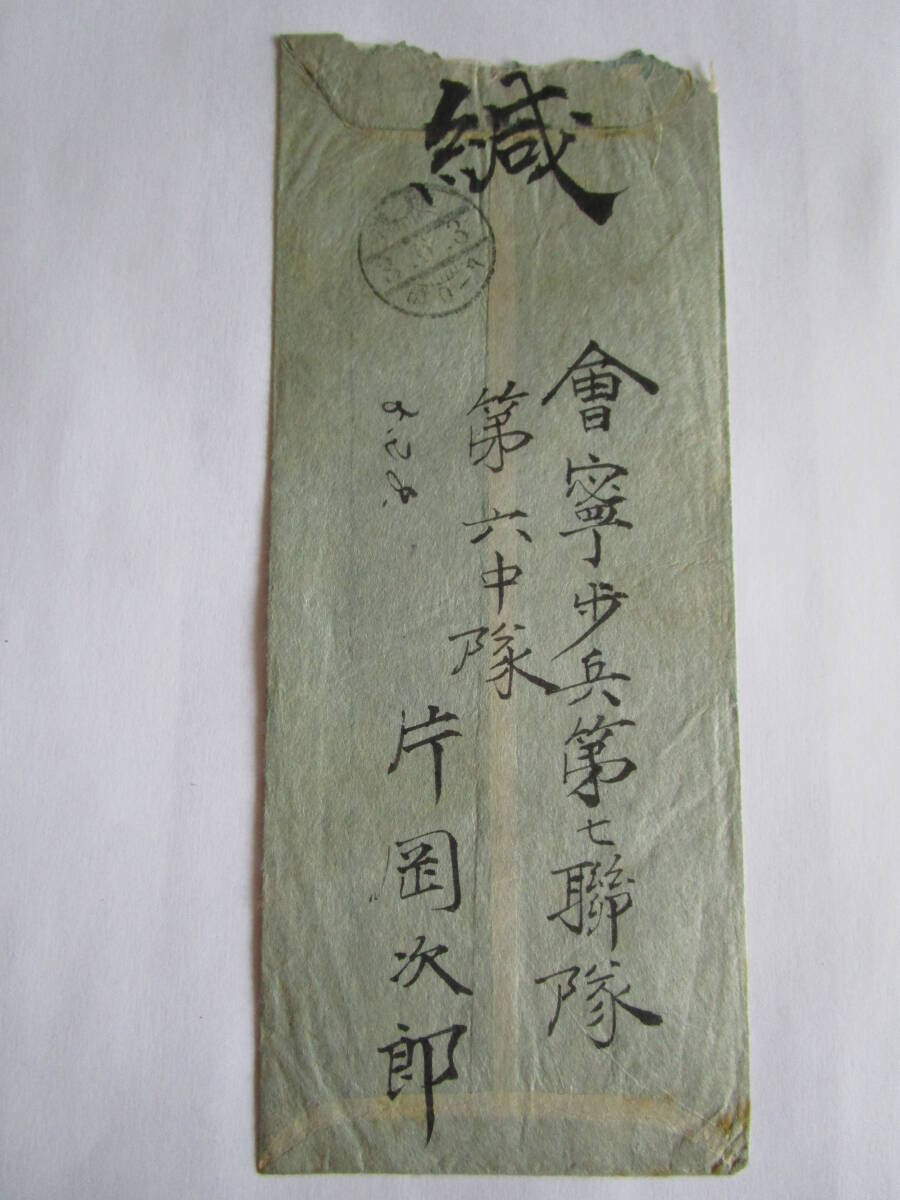 緘
會寧歩兵第七聯隊
第六中隊
片岡次郎